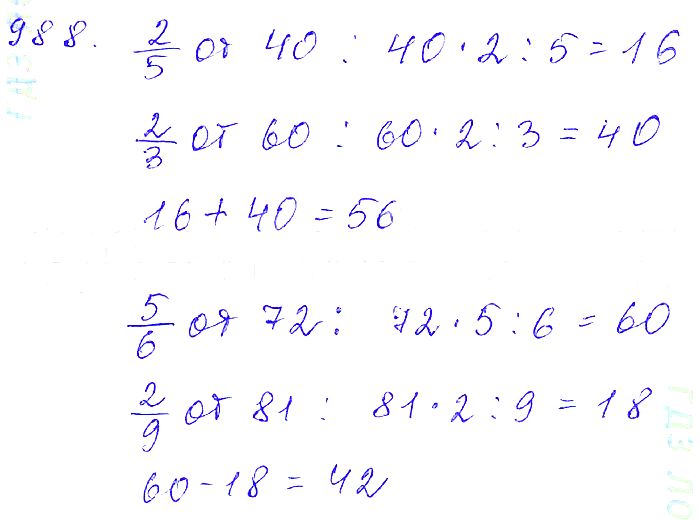 988. 2/5 от 40 : 40 · 2 : 5 = 16
2/3 от 60 : 60 · 2 : 3 = 40
16 + 40 = 56
5/6 от 72 : 72 · 5 : 6 = 60
2/9 от 81 : 81 · 2 : 9 = 18
60 - 18 = 42